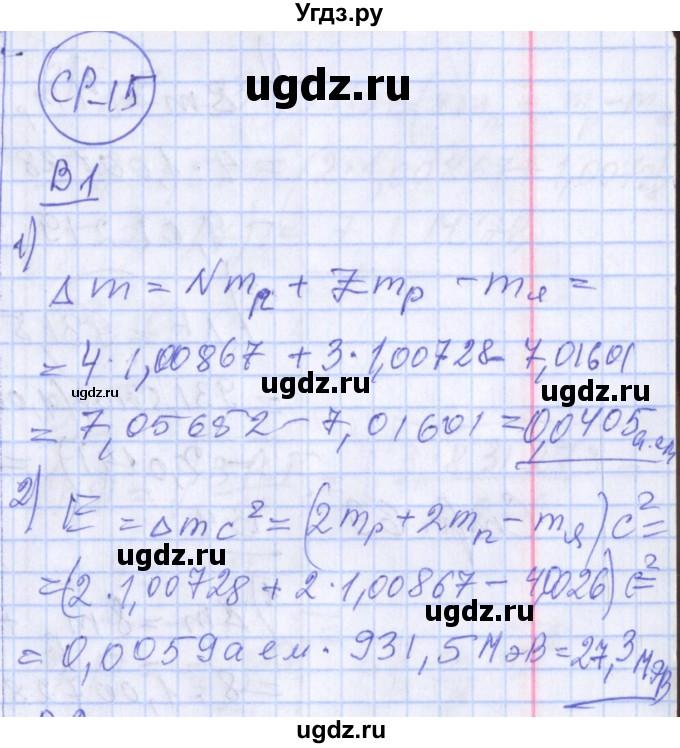 Угдз.ру
СР-15
ugdz.ru
В1
1)
Δm = Nmₙ + Zmₚ - mя =
= 4·1,00867 + 3·1,00728 - 7,01601
ugdz.ru
ugdz.ru
ugdz.ru
= 7,05652 - 7,01601 = 0,0405 а.ем
2) E = Δmc² = (2mₚ + 2mₙ - mя)c² =
ugdz.ru
= (2·1,00728 + 2·1,00867 - 4,0026)c² =
ugdz.ru
= 0,0059 а ем · 931,5 МэВ = 27,3 МэВ
ugdz.ru
ugdz.ru